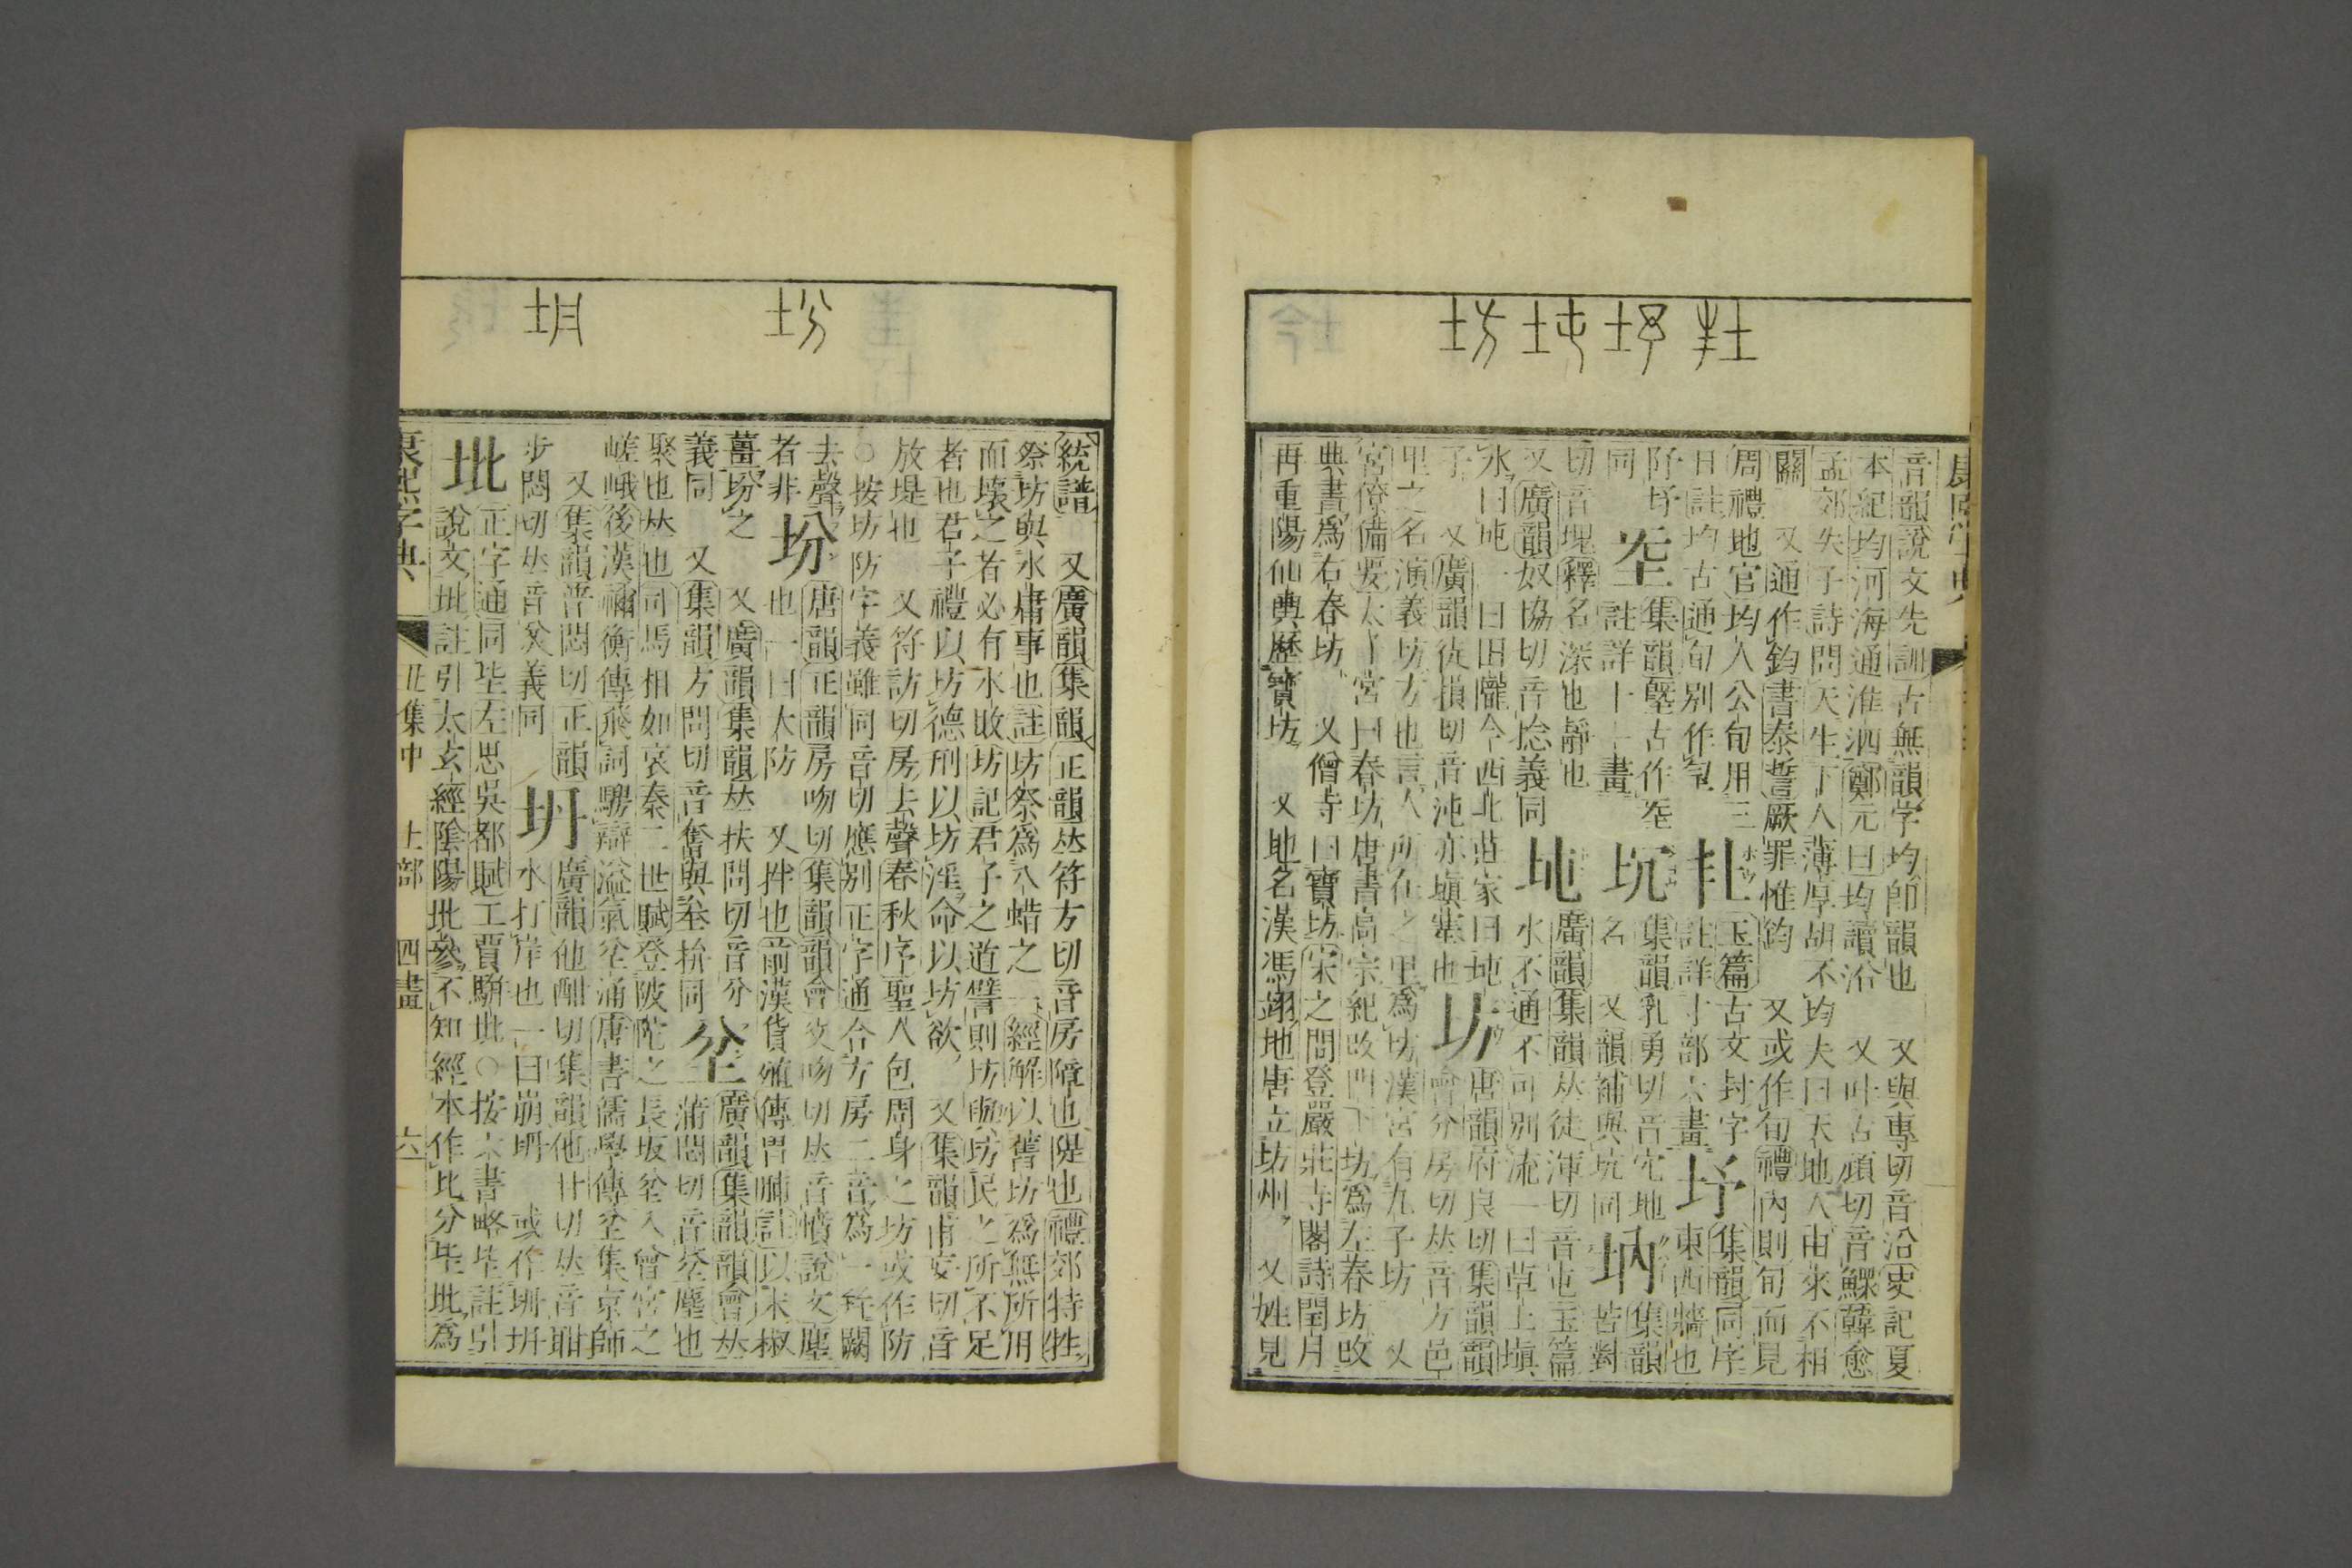 康熙字典
音韻說文先訓古無韻字均卽韻也　又與專切音沿史記夏
本紀均河海通淮泗鄭元曰均讀沿　又叶古頑切音鰥韓愈
孟郊失子詩問天生下人薄厚胡不均夫曰天地人由來不相
關　又通作鈞書泰誓厥罪惟鈞　又或作旬禮內則旬而見
周禮地官均人公旬用三
日註均古通旬別作
玉篇古文封字
註詳寸部六畫
㘧
集韻同序
東西牆也
同
集韻堲古作
註詳十一畫
坈
集韻乳勇切音宂地
名　又韻補與坑同
㘨
集韻
苦對
切音塊釋名深也靜也
又廣韻奴協切音惗義同
坉
廣韻集韻𠀤徒渾切音屯玉篇
水不通不可別流一曰草土塡
水曰坉一曰田隴今西北莊家曰坉
子　又廣韻徒損切音沌亦塡塞也
坊
唐韻府良切集韻韻
會分房切𠀤音方邑
里之名演義坊方也言人所在之里爲坊漢宮有九子坊　又
宮僚備要太子宮曰春坊唐書高宗紀改門下坊爲左春坊改
典書爲右春坊　又僧寺曰寶坊宋之問登嚴莊寺閣詩閏月
再重陽仙輿歷寶坊　又地名漢馮翊地唐立坊州　又姓見
統譜　又廣韻集韻正韻𠀤符方切音房障也隄也禮郊特牲
祭坊與水庸事也註坊祭爲八蜡之一經解以舊坊爲無所用
而壞之若必有水敗坊記君子之道譬則坊與坊民之所不足
者也君子禮以坊德刑以坊淫命以坊欲　又集韻甫妄切音
放堤也　又符訪切房去聲春秋序聖人包周身之坊或作防
○按坊防字義雖同音切應別正字通合方房二音爲一幷闕
去聲
者非
坋
唐韻正韻房吻切集韻韻會父吻切𠀤音憤說文塵
也一曰大防　又拌也前漢貨殖傳胃脯註以末椒
薑坋之　又廣韻集韻𠀤扶問切音分
義同　又集韻方問切音奮與坌拚同
坌
廣韻集韻韻會𠀤
蒲悶切音坋塵也
聚也𠀤也司馬相如哀秦二世賦登陂陀之長坂坌入曾宮之
嵯峨後漢禰衡傳飛詞騁辯溢氣坌涌唐書儒學傳坌集京師
又集韻普悶切正韻
步悶切𠀤音坋義同
坍
廣韻他酣切集韻他甘切𠀤音聃
水打岸也一曰崩坍　或作坍坍
坒
正字通同坒左思吳都賦工賈駢坒○按六書略坒註引
說文坒註引太玄經陰陽坒參不知經本作比分坒坒爲
康熙字典
丑集中　土部　四畫　六